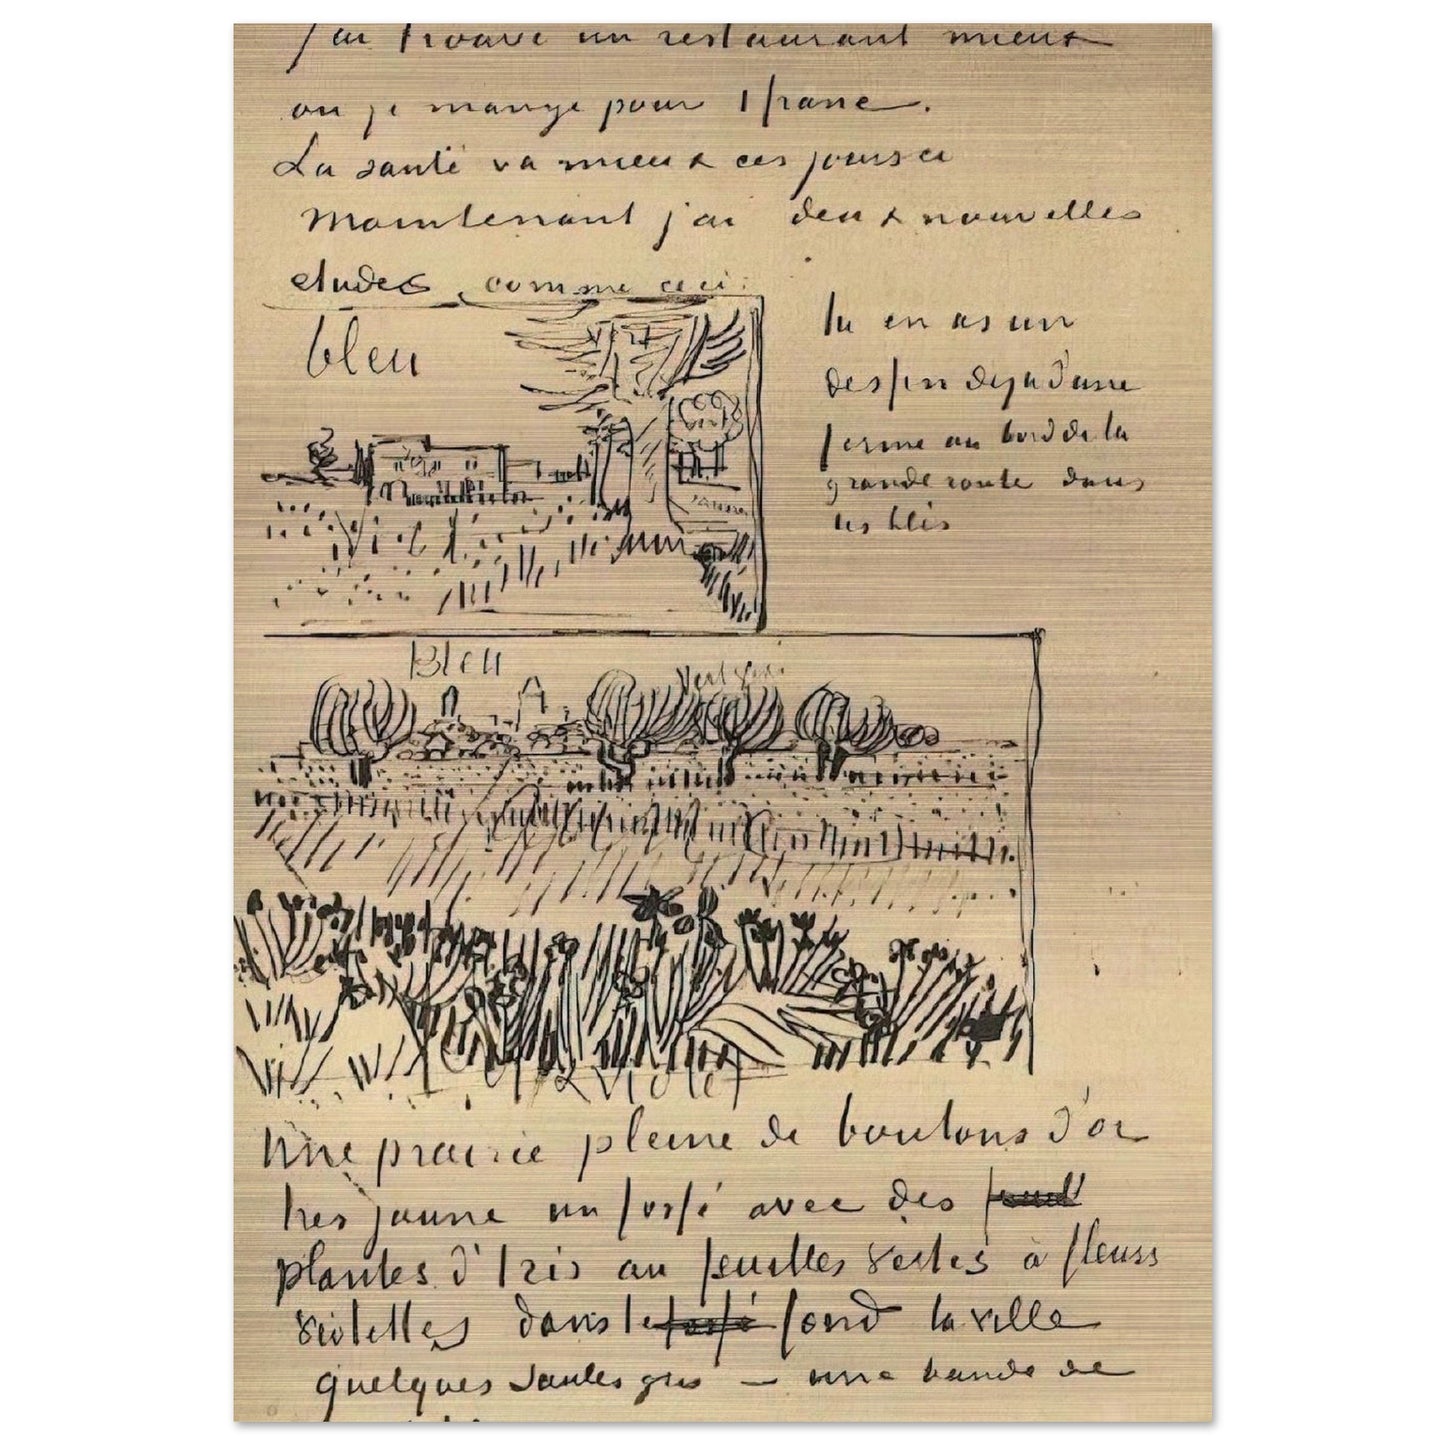 j'ai trouvé un restaurant mieux
ou je mange pour 1 franc.
La santé va mieux ces joursci
Maintenant j'ai deux nouvelles
etudes comme ceci:
bleu
vert
vert
jaune
tu en as un
dessin deja d'une
ferme au bord de la
grande route dans
les blés
Bleu
Vert gris
Violet
Une prairie pleine de boutons d'or
tres jaune un fossé avec des
plantes d'Iris au feuilles vertes à fleurs
violettes dans le fossé fond la ville
quelques saules gris – une bande de